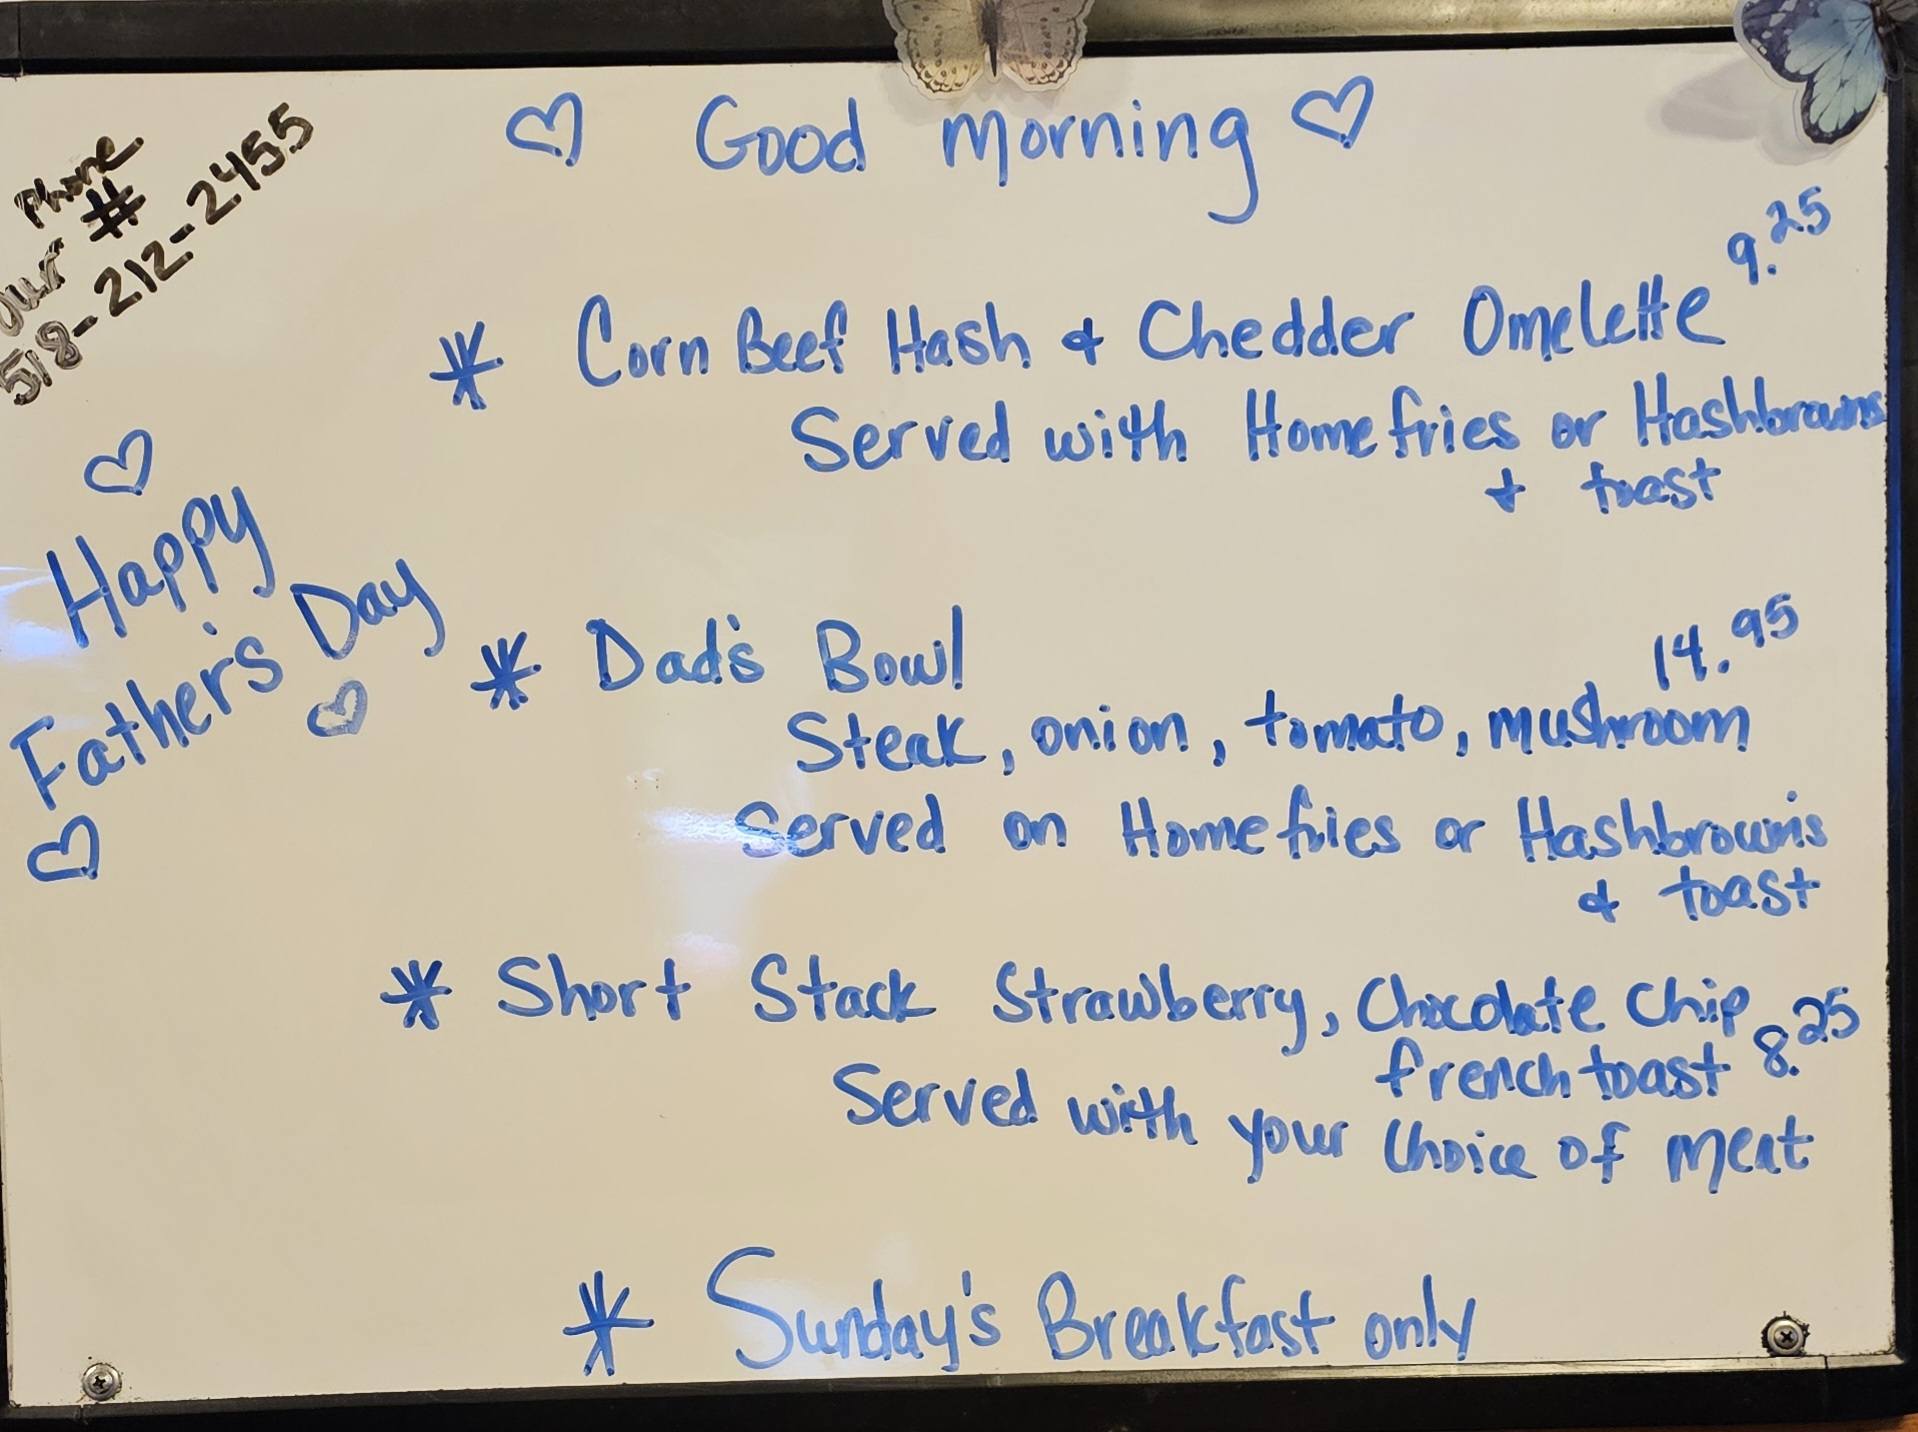 Good morning
Our Phone #
518-212-2455
Corn Beef Hash & Chedder Omelette 9.25
Served with Homefries or Hashbrowns
+ toast
Happy
Father's Day
Dad's Bowl 14.95
Steak, onion, tomato, mushroom
Served on Homefries or Hashbrown's
& toast
Short Stack Strawberry, Chocolate Chip
french toast 8.25
Served with your Choice of meat
Sunday's Breakfast only